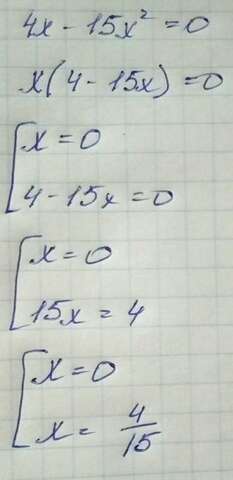 4x - 15x² = 0
x(4 - 15x) = 0
[ x = 0
4 - 15x = 0
[ x = 0
15x = 4
[ x = 0
x = 4/15